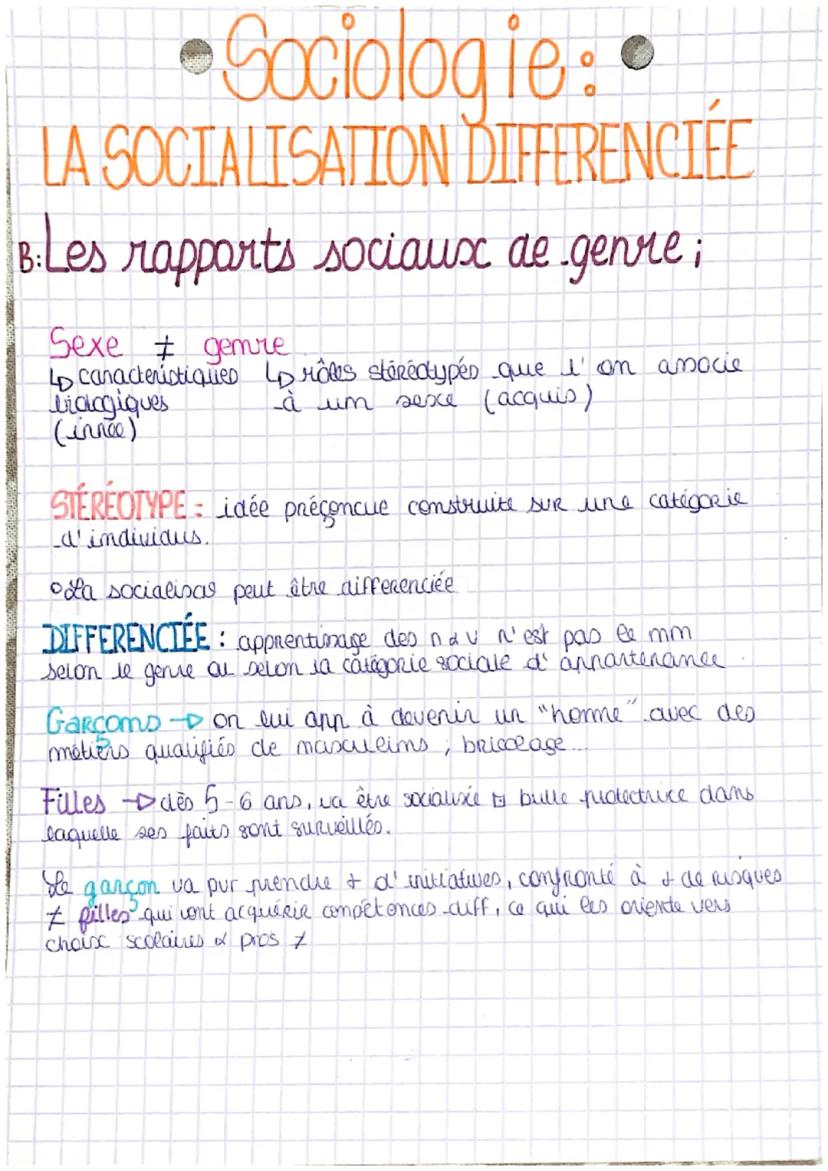 Sociologie:
LA SOCIALISATION DIFFERENCIÉE
B: Les rapports sociaux de genre ;
Sexe ≠ genre
↳ caractéristiques ↳ rôles stéréotypés que l'on associe
biologiques à un sexe (acquis)
(innée)
STÉRÉOTYPE : idée préçoncue construite sur une catégorie
d'individus.
° La socialisas peut être differenciée
DIFFERENCIÉE : apprentissage des n & v n'est pas le mm
selon le genre ou selon la catégorie sociale d'appartenance.
GARÇONS → on lui app à devenir un "homme" avec des
métiers qualifiés de masculins ; bricolage...
Filles → dès 5-6 ans, va être socialisée bulle protectrice dans
laquelle ses faits sont surveillés.
Le garçon va pvr prendre + d'initiatives, confronté à + de risques
≠ filles qui vont acquérir compétences diff, ce qui les oriente vers
choix scolaires & pros ≠